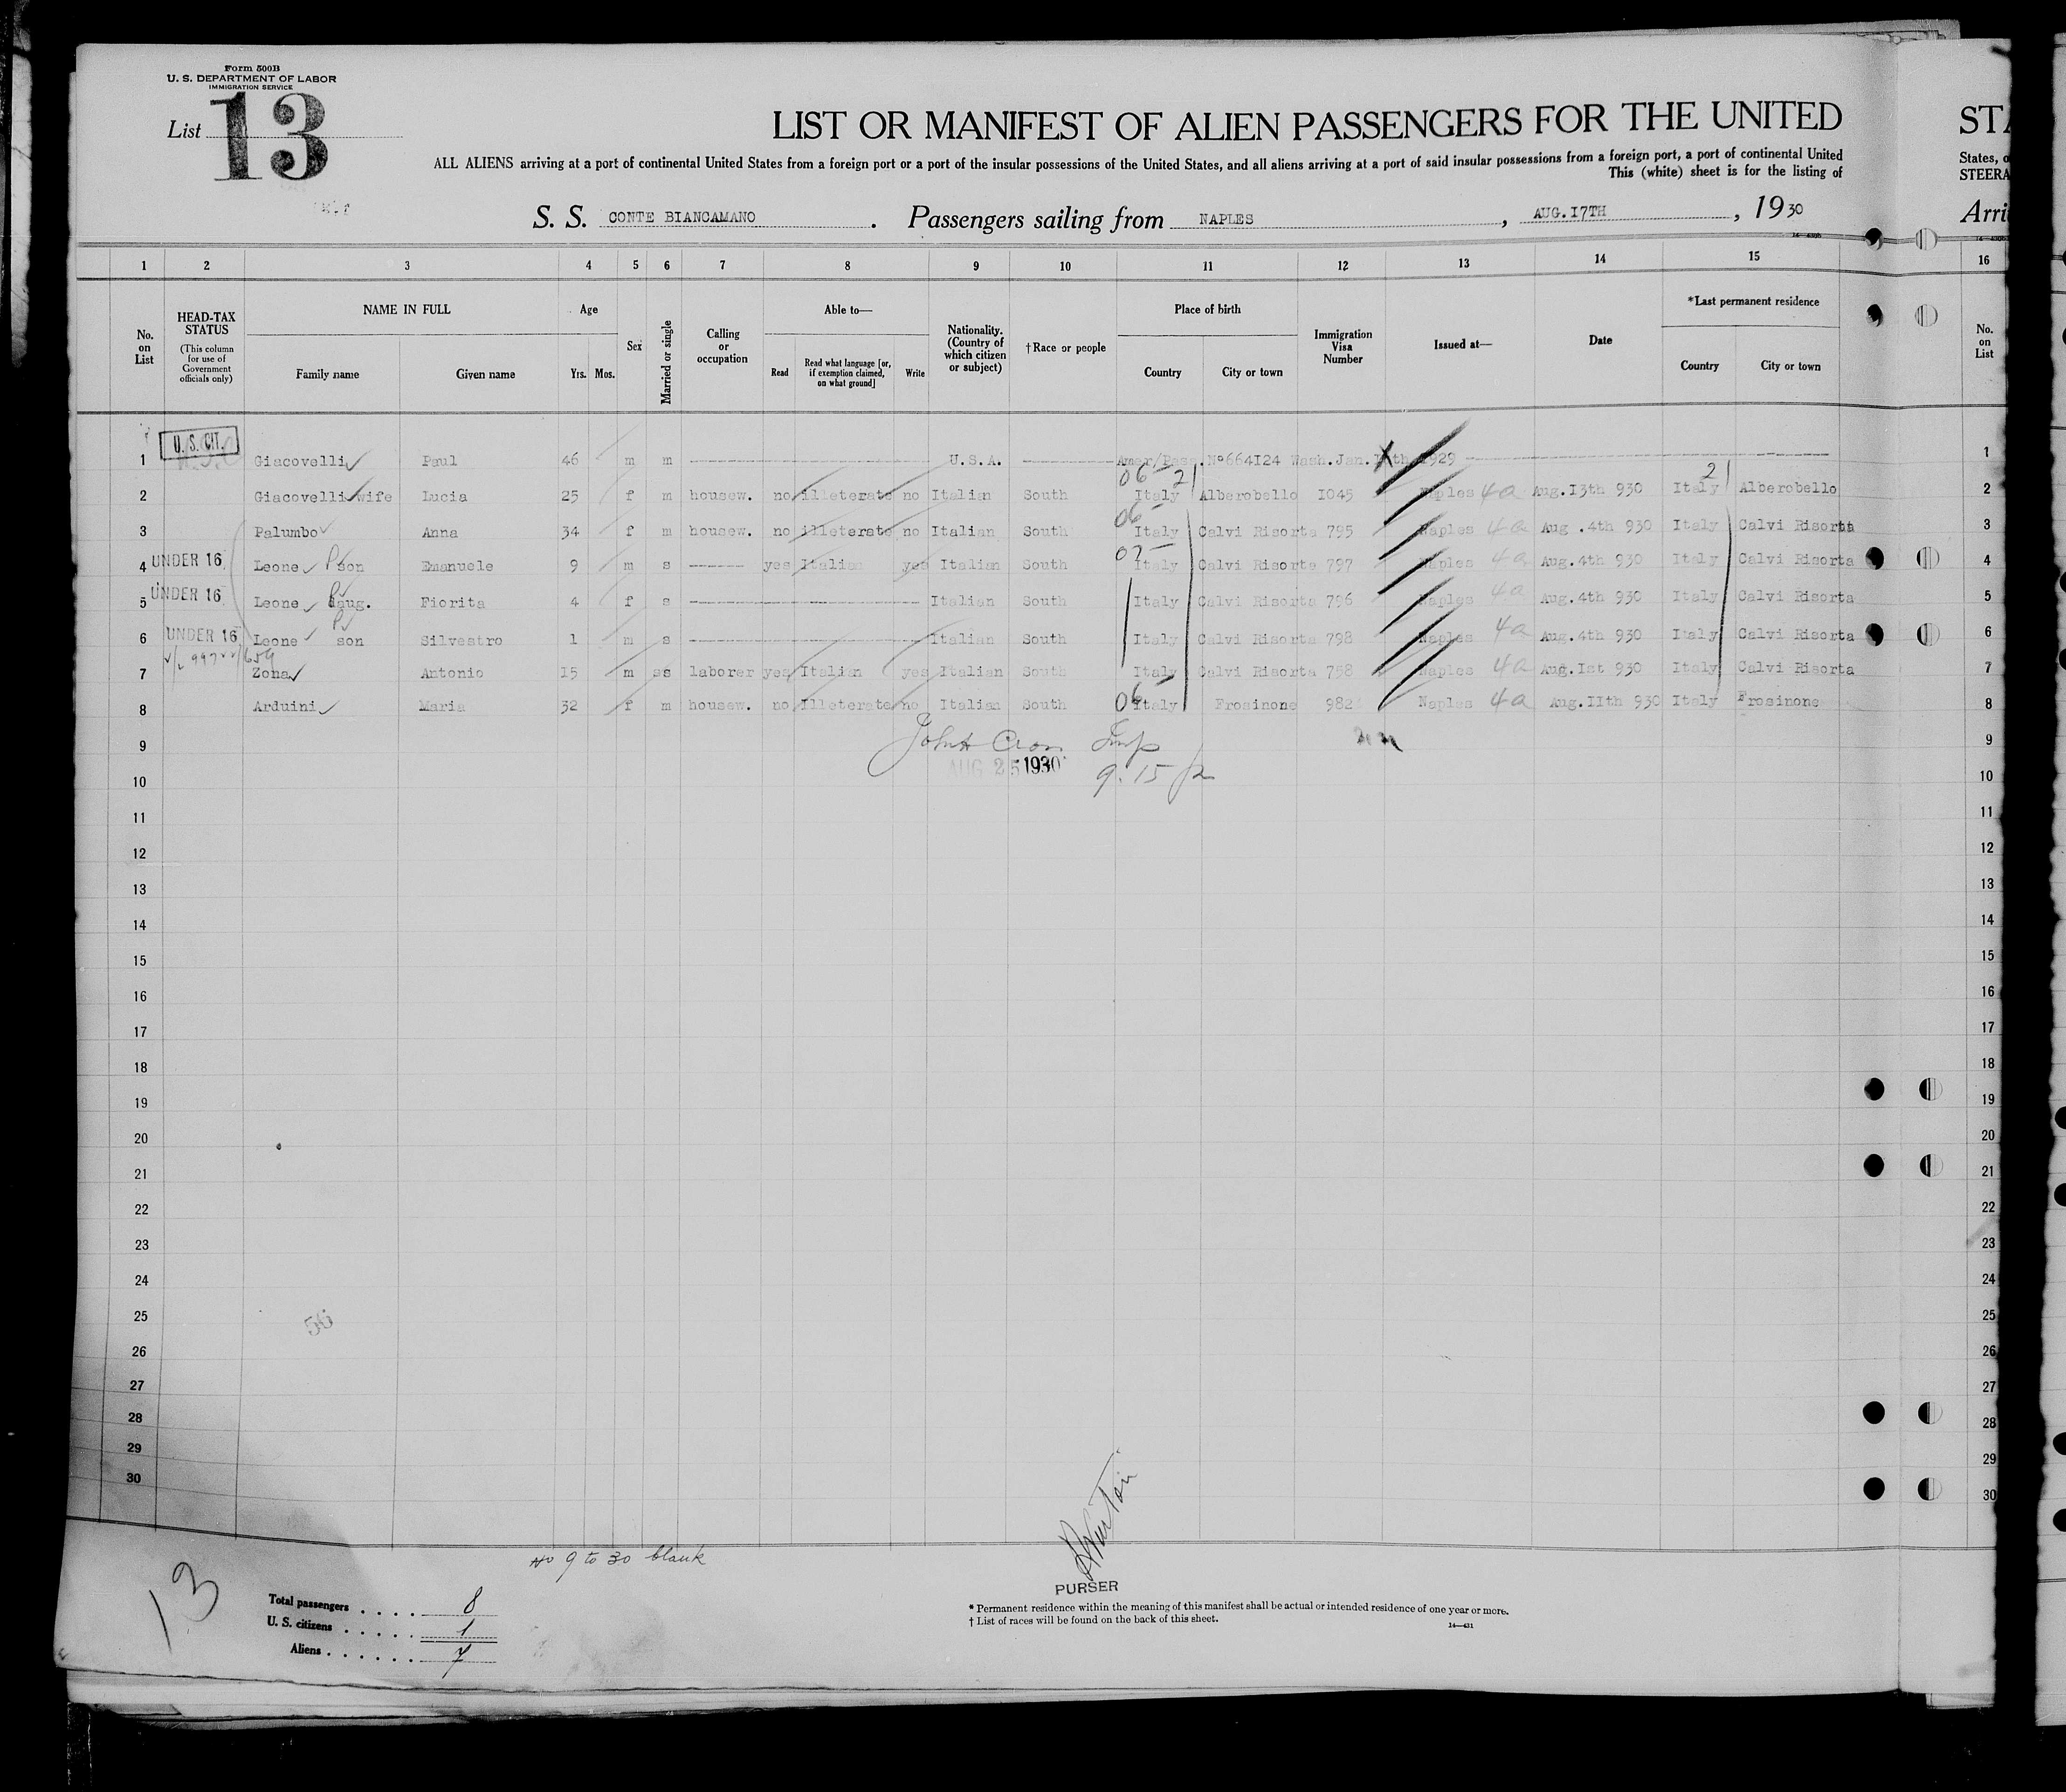 Form 500B
U. S. DEPARTMENT OF LABOR
IMMIGRATION SERVICE
List 13
LIST OR MANIFEST OF ALIEN PASSENGERS FOR THE UNITED
ALL ALIENS arriving at a port of continental United States from a foreign port or a port of the insular possessions of the United States, and all aliens arriving at a port of said insular possessions from a foreign port, a port of continental United
This (white) sheet is for the listing of
S. S. CONTE BIANCAMANO. Passengers sailing from NAPLES, AUG.I7TH, 1930
STA
States, o
STEERA
Arri
1 2 3 4 5 6 7 8 9 10 11 12 13 14 15 16
No. on List
HEAD-TAX STATUS
(This column for use of Government officials only)
NAME IN FULL
Family name
Given name
Age
Yrs. Mos.
Sex
Married or single
Calling or occupation
Able to—
Read
Read what language [or, if exemption claimed, on what ground]
Write
Nationality. (Country of which citizen or subject)
†Race or people
Place of birth
Country
City or town
Immigration Visa Number
Issued at—
Date
*Last permanent residence
Country
City or town
No. on List
1 U. S. CIT. Giacovelli Paul 46 m m U.S.A. Amer/Pass.Nº664I24 Wash.Jan. th 1929 1
06 21 2
2 Giacovelli wife Lucia 25 f m housew. no illeterate no Italian South Italy Alberobello I045 Naples 4a Aug.I3th 930 Italy Alberobello 2
06
3 Palumbo Anna 34 f m housew. no illeterate no Italian South Italy Calvi Risorta 795 Naples 4a Aug .4th 930 Italy Calvi Risorta 3
4 UNDER 16 Leone son Emanuele 9 m s yes Italian yes Italian South Italy Calvi Risorta 797 Naples 4a Aug.4th 930 Italy Calvi Risorta 4
5 UNDER 16 Leone daug. Fiorita 4 f s Italian South Italy Calvi Risorta 796 Naples 4a Aug.4th 930 Italy Calvi Risorta 5
6 UNDER 16 Leone son Silvestro 1 m s Italian South Italy Calvi Risorta 798 Naples 4a Aug.4th 930 Italy Calvi Risorta 6
7 Zona Antonio I5 m ss laborer yes Italian yes Italian South Italy Calvi Risorta 758 Naples 4a Aug.Ist 930 Italy Calvi Risorta 7
8 Arduini Maria 32 f m housew. no Illeterate no Italian South 06 Italy Frosinone 982 Naples 4a Aug.IIth 930 Italy Frosinone 8
9 9
AUG 25 1930
10 9.15 10
11 11
12 12
13 13
14 14
15 15
16 16
17 17
18 18
19 19
20 20
21 21
22 22
23 23
24 24
25 56 25
26 26
27 27
28 28
29 29
30 30
No 9 to 30 blank
13
Total passengers 8
U. S. citizens 1
Aliens 7
PURSER
* Permanent residence within the meaning of this manifest shall be actual or intended residence of one year or more.
† List of races will be found on the back of this sheet.
14—431